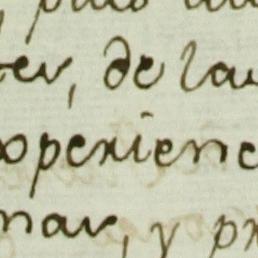 ter, de la
experienc
nar, y pr